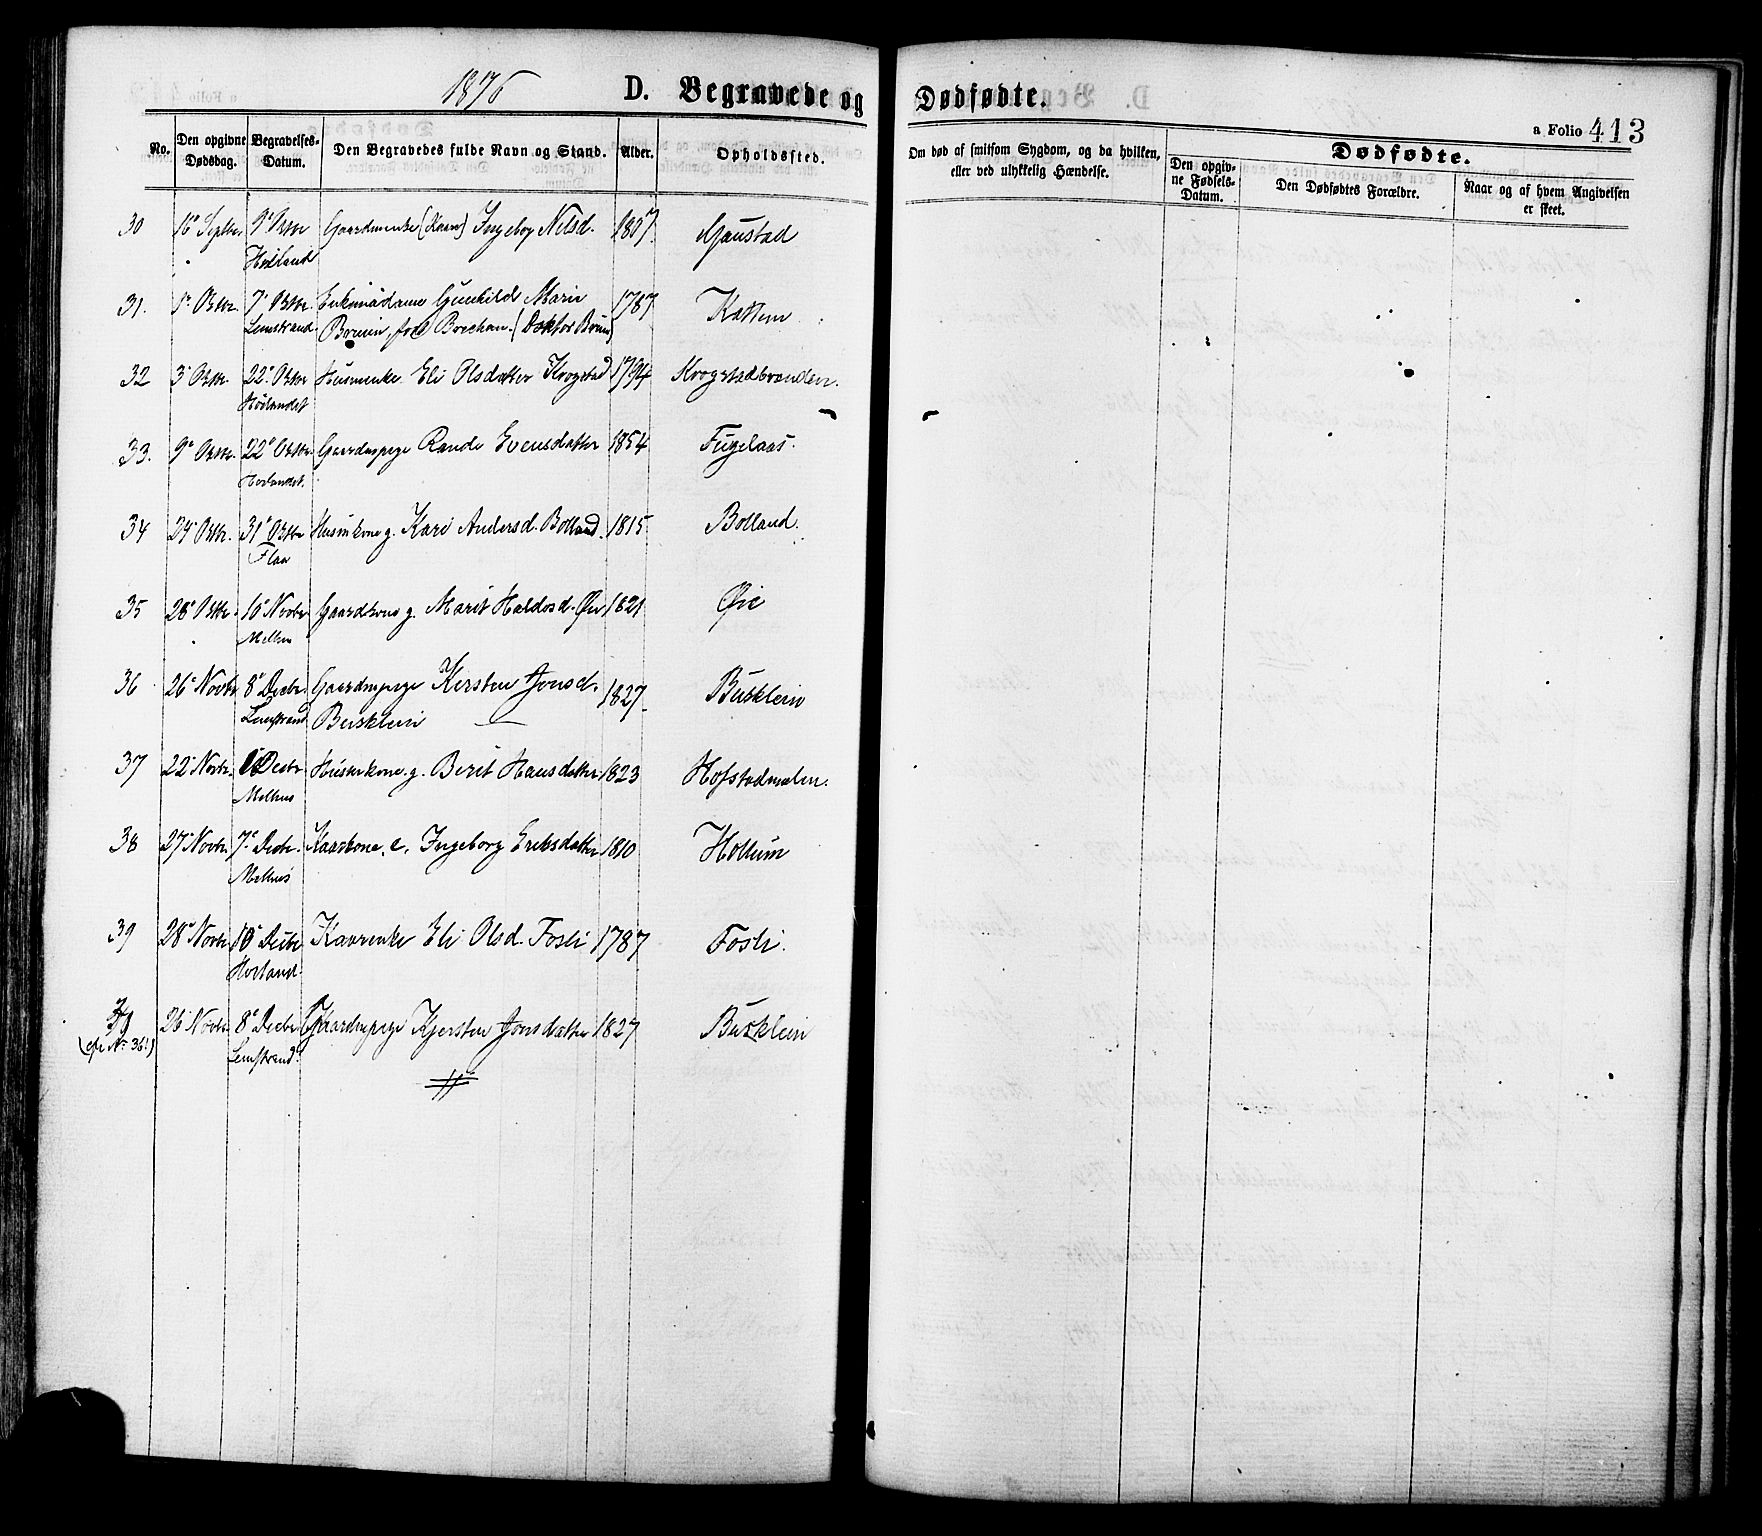 1876 D. Begravede og Dødfødte.
a Folio 413
No.
Den opgivne Dødsdag.
Begravelses-Datum.
Den Begravedes fulde Navn og Stand.
Alder.
Opholdssted.
Om død af smitsom Sygdom, og da hvilken,
eller ved ulykkelig Hændelse.
Dødfødte.
Den opgivne Fødsels-Datum.
Den Dødfødtes Forældre.
Naar og af hvem Angivelsen
er skeet.
30 16 Septbr 9 Octbr Gaardmenke (Kaar) Ingebog Nilsd. 1807 Gaustad
Høiland
31. 1 Octbr. 7 Octbr Enkemadame Gunhild Marie 1787 Kattem
Lenstrand. Bruun, født Brechan (Doktor Bruun)
32 3 Octbr. 22 Octbr Husmenke Eli Olsdatter Krogstad 1794 Krogstadbranden.
Hølandet
33. 9 Octbr. 22 Octbr. Gaardspige Randi Evensdatter 1854 Fuglaas.
Hølandet.
34 24 Octbr. 31 Octbr Huuskone g. Kari Andersd. Bolland. 1815 Bolland.
Flaa
35 28 Octbr. 10 Novbr Gaardkone g. Marit Haldosd. Øie 1821 Øie
Melhus
36 26 Novbr 8 Decbr. Gaardmpige Kersten Jonsd. 1827 Busklein
Lenstrand Busklein
37 22 Novbr. Decbr Husmkone g. Berit Hansdatter 1823 Hofstadmælen.
Melhus
38 27 Novbr. 7 Decbr. Kaarkone, e. Ingeborg Eriksdatter 1810 Hollum
Melhus
39 28 Novbr 10 Decbr Kaarenke Eli Olsd. Fosli 1787 Fosli.
Høiland.
26 Novbr. 8 Decbr Gaardmpige Kjersten Jonsdatter 1827 Busklein
(cfr No 36!) Lenstrand.